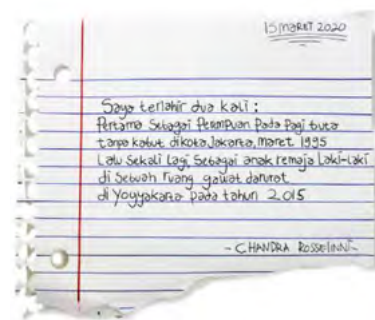 15 MARET 2020
Saya terlahir dua kali :
Pertama Sebagai Perempuan Pada Pagi buta
tanpa kabut dikota Jakarta, maret 1995
Lalu Sekali lagi Sebagai anak remaja Laki-Laki
di Sebuah ruang gawat darurat
di Yogyakarta Pada tahun 2015
- CHANDRA